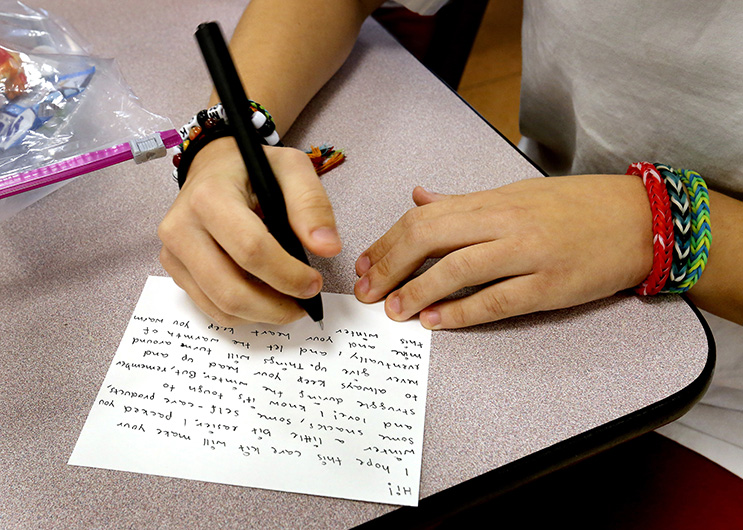 Hi!
I hope this care kit will make your
winter a little bit easier. I packed you
some snacks, some self-care products,
and love! I know it's tough to
struggle during the winter. But, remember
to always keep your head up and
never give up. Things will turn around
eventually, and let the warmth of
mine and your heart keep you warm
this winter